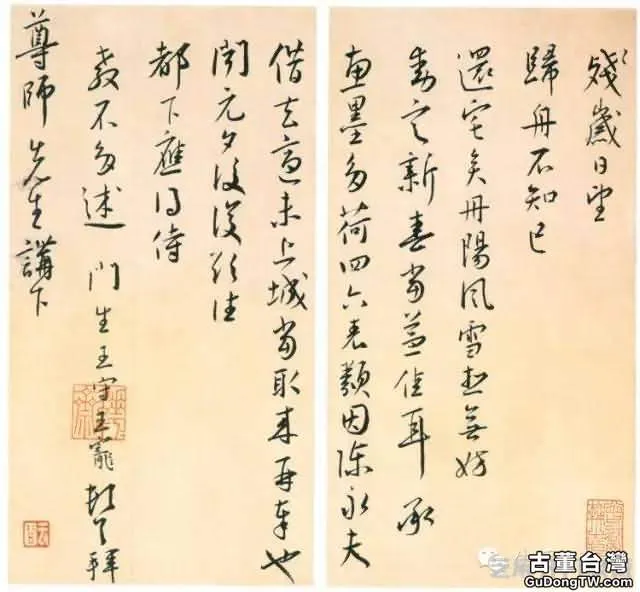 殘歲日望
歸舟不知已
還宅矣丹陽風雪想無妨
動定新春當益佳耳承
惠墨多荷四六表類因陳永夫
借去適未上城當取來再奉也
聞元夕後復欲往
都下應得侍
教不多述 門生王守王寵頓首拜
尊師先生講下
古董台灣
GuDongTW.com